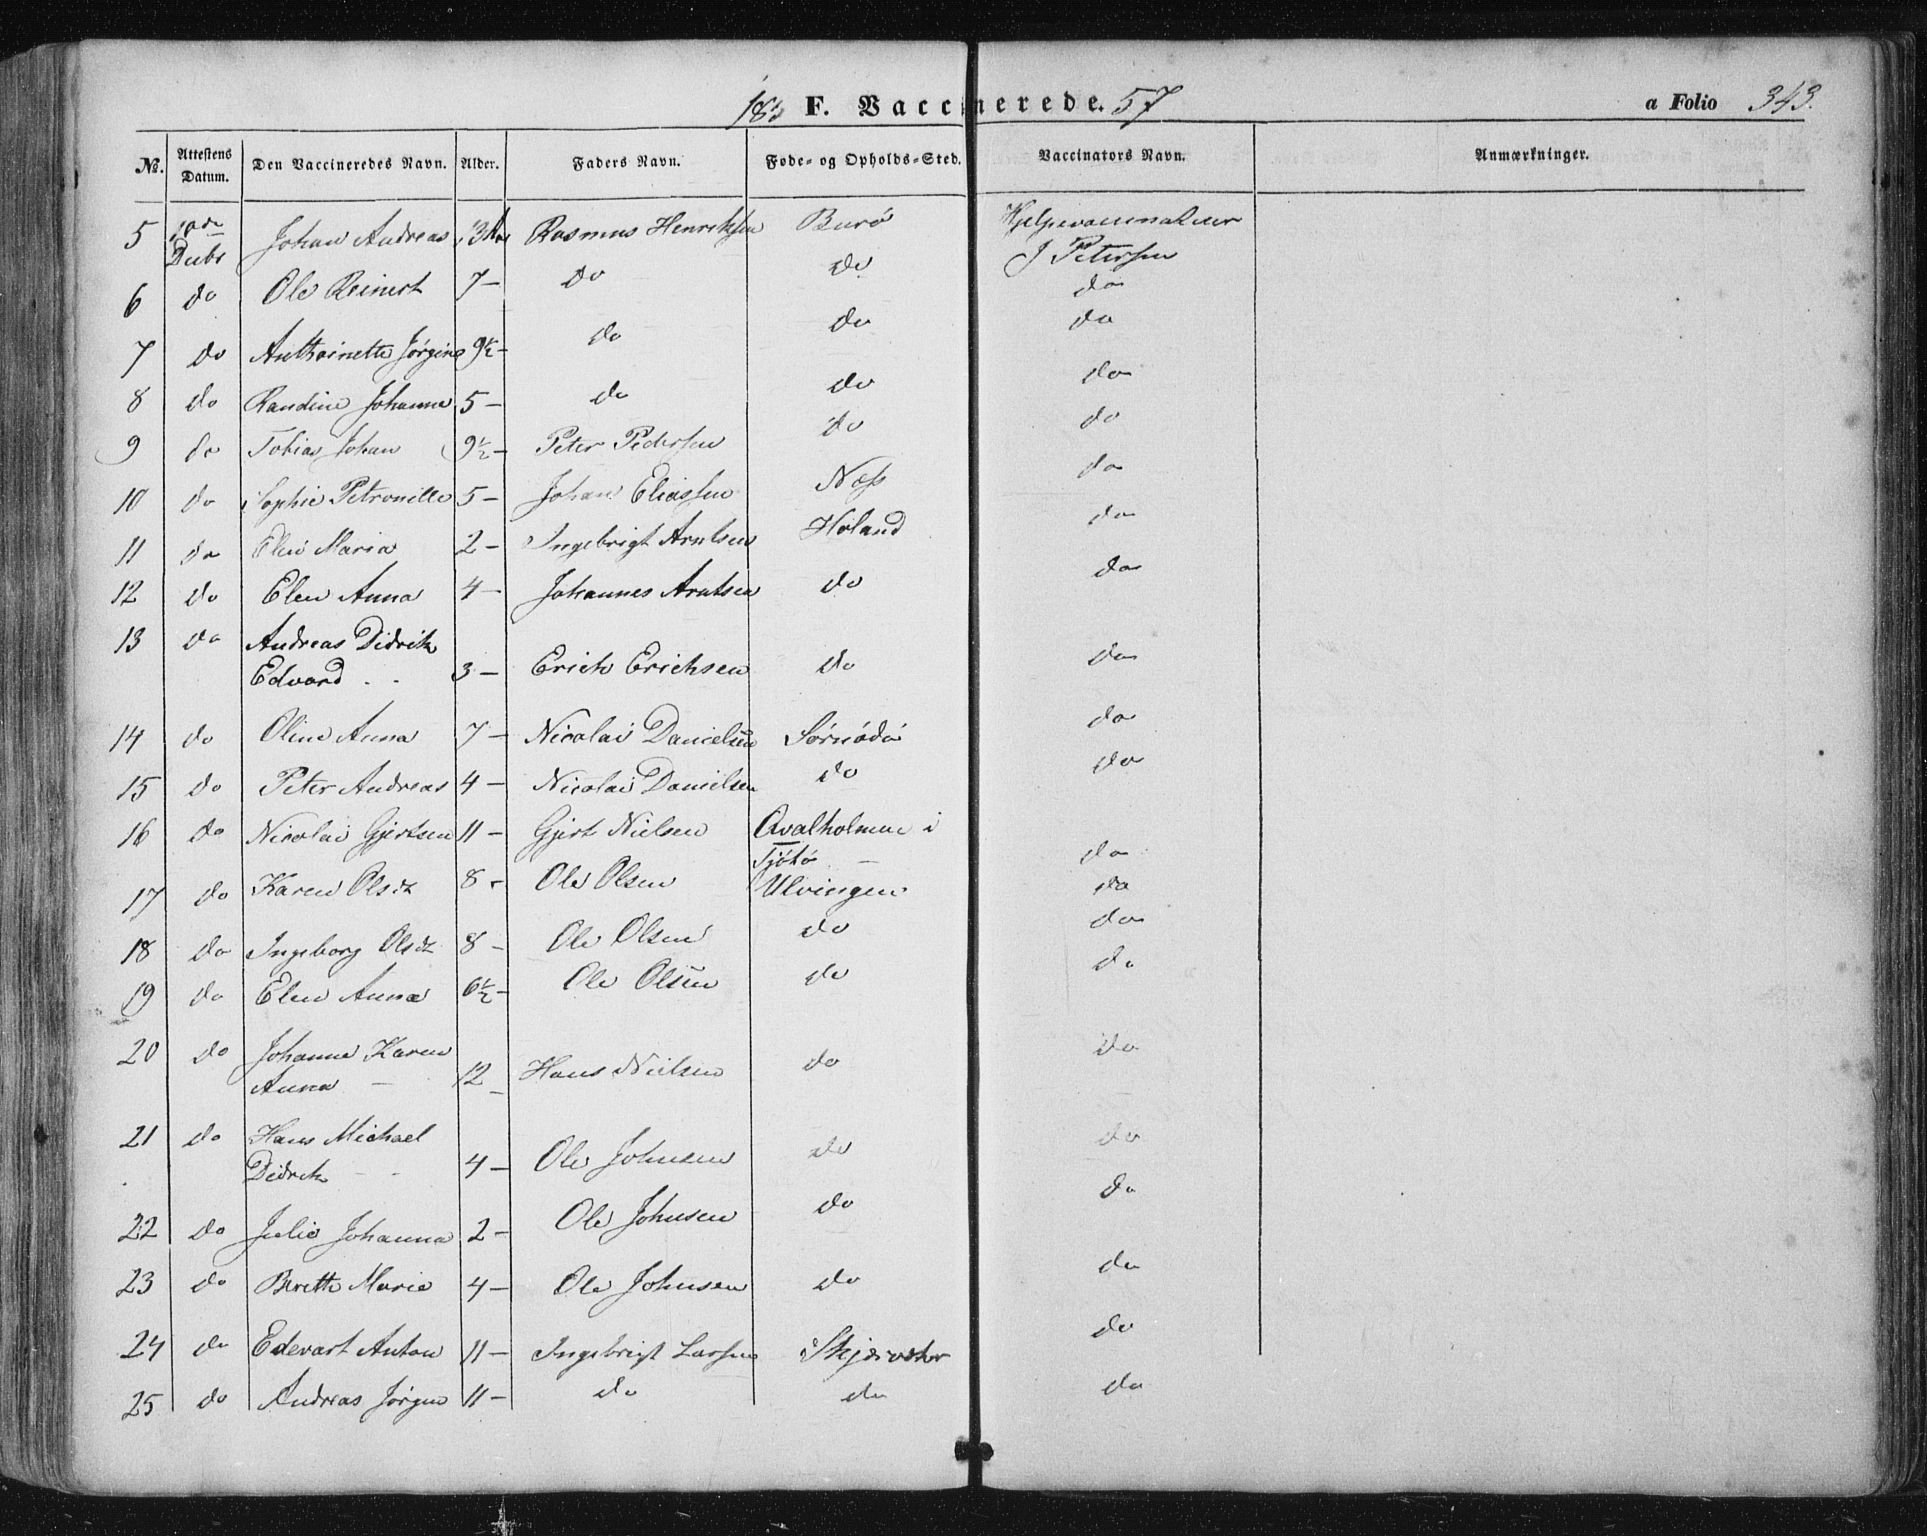 185 F. Vaccinerede. 57 a Folio 343.
No. Attestens Datum. Den Vaccineredes Navn. Alder. Faders Navn. Føde- og Opholds-Sted. Vaccinators Navn. Anmærkninger.
5 10de Decbr Johan Andreas 13 Rasmus Henriksen Burø Hjelpevaccinateur
J Petersen
6 do Ole Reinert 7 - do do do
7 do Anthoinette Jørgine 9½ - do do do
8 do Randine Johanna 5 - do do do
9 do Tobias Johan 9½ - Peter Pedersen do do
10 do Sophie Petronille 5 - Johan Eliassen Næss do
11 do Elen Maria 2 - Ingebrigt Arntsen Holand do
12 do Elen Anna 4 - Johannes Arntsen do do
13 do Andreas Didrik
Edvard . . 3 - Erich Erichsen do do
14 do Oline Anna 7 - Nicolai Danielsen Sørnødø do
15 do Peter Andreas 4 - Nicolai Danielsen do do
16 do Nicolai Gjertsen 11 - Gjert Nielsen Qvalholmen i
Tjøtø - do
17 do Karen Olsdtr 8 - Ole Olsen Ulvingen do
18 do Ingeborg Olsdtr 8 - Ole Olsen do do
19 do Elen Anna 6½ - Ole Olsen do do
20 do Johanna Karen
Anna - 12 - Hans Nielsen do do
21 do Hans Michael
Didrik - - 4 - Ole Johnsen do do
22 do Julie Johanna 2 - Ole Johnsen do do
23 do Berette Marie 4 - Ole Johnsen do do
24 do Edevart Anton 11 - Ingebrigt Larsen do
25 do Andreas Jørgen 11 - do do do